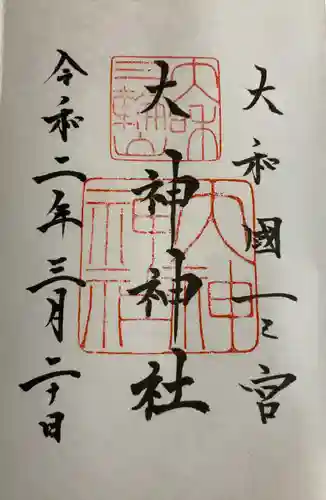 大和國一之宮
大神神社
令和二年三月二十日
大神
神社